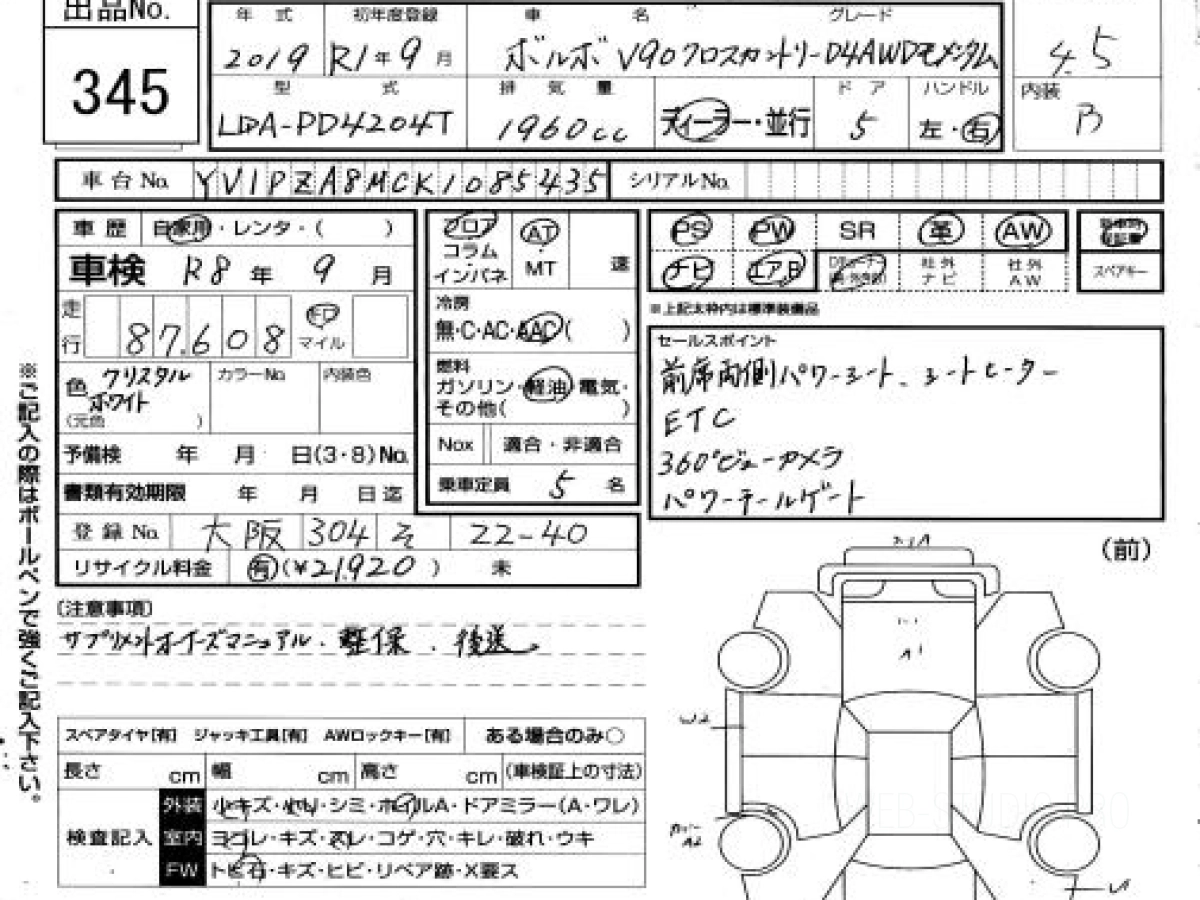 出品No.
345
年 式 初年度登録 車 名 グレード
2019 R1年9月 ボルボ V90クロスカントリーD4AWDモメンタム
4.5
型 式 排 気 量 ドア ハンドル
LDA-PD4204T 1960cc ディーラー・並行 5 左・右
内装
B
車台No. YV1PZA8MCK1085435 シリアルNo.
車歴 自家用・レンタ・( )
車検 R8年 9月
走行 87,608 マイル
色 クリスタルホワイト カラーNo. 内装色
(元色 )
予備検 年 月 日(3・8)No.
書類有効期限 年 月 日迄
登録No. 大阪 304 そ 22-40
リサイクル料金 有(¥21,920) 未
フロア AT
コラム
インパネ MT 速
冷房
無・C・AC・AAC( )
燃料
ガソリン・軽油・電気・
その他( )
Nox 適合・非適合
乗車定員 5 名
PS PW SR 革 AW
ナビ エアB 社外ナビ 社外AW スペアキー
※上記太枠内は標準装備品
セールスポイント
前席両側パワーシート、シートヒーター
ETC
360°ビューカメラ
パワーテールゲート
※ご記入の際はボールペンで強くご記入下さい。
(注意事項)
サプリメントオーナーズマニュアル・整保・後送
スペアタイヤ[有] ジャッキ工具[有] AWロックキー[有] ある場合のみ○
長さ cm 幅 cm 高さ cm (車検証上の寸法)
検査記入
外装 小キズ・ ・シミ・ホイルA・ドアミラー(A・ワレ)
室内 ヨゴレ・キズ・スレ・コゲ・穴・キレ・破れ・ウキ
FW トビ石・キズ・ヒビ・リペア跡・X要ス
(前)
A1
W2
カバー
A2